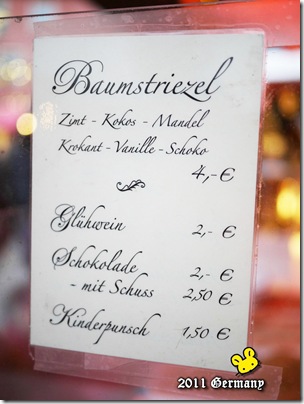 Baumstriezel
Zimt - Kokos - Mandel
Krokant - Vanille - Schoko
4,- €
Glühwein 2,- €
Schokolade 2,- €
- mit Schuss 2,50 €
Kinderpunsch 1,50 €
2011 Germany